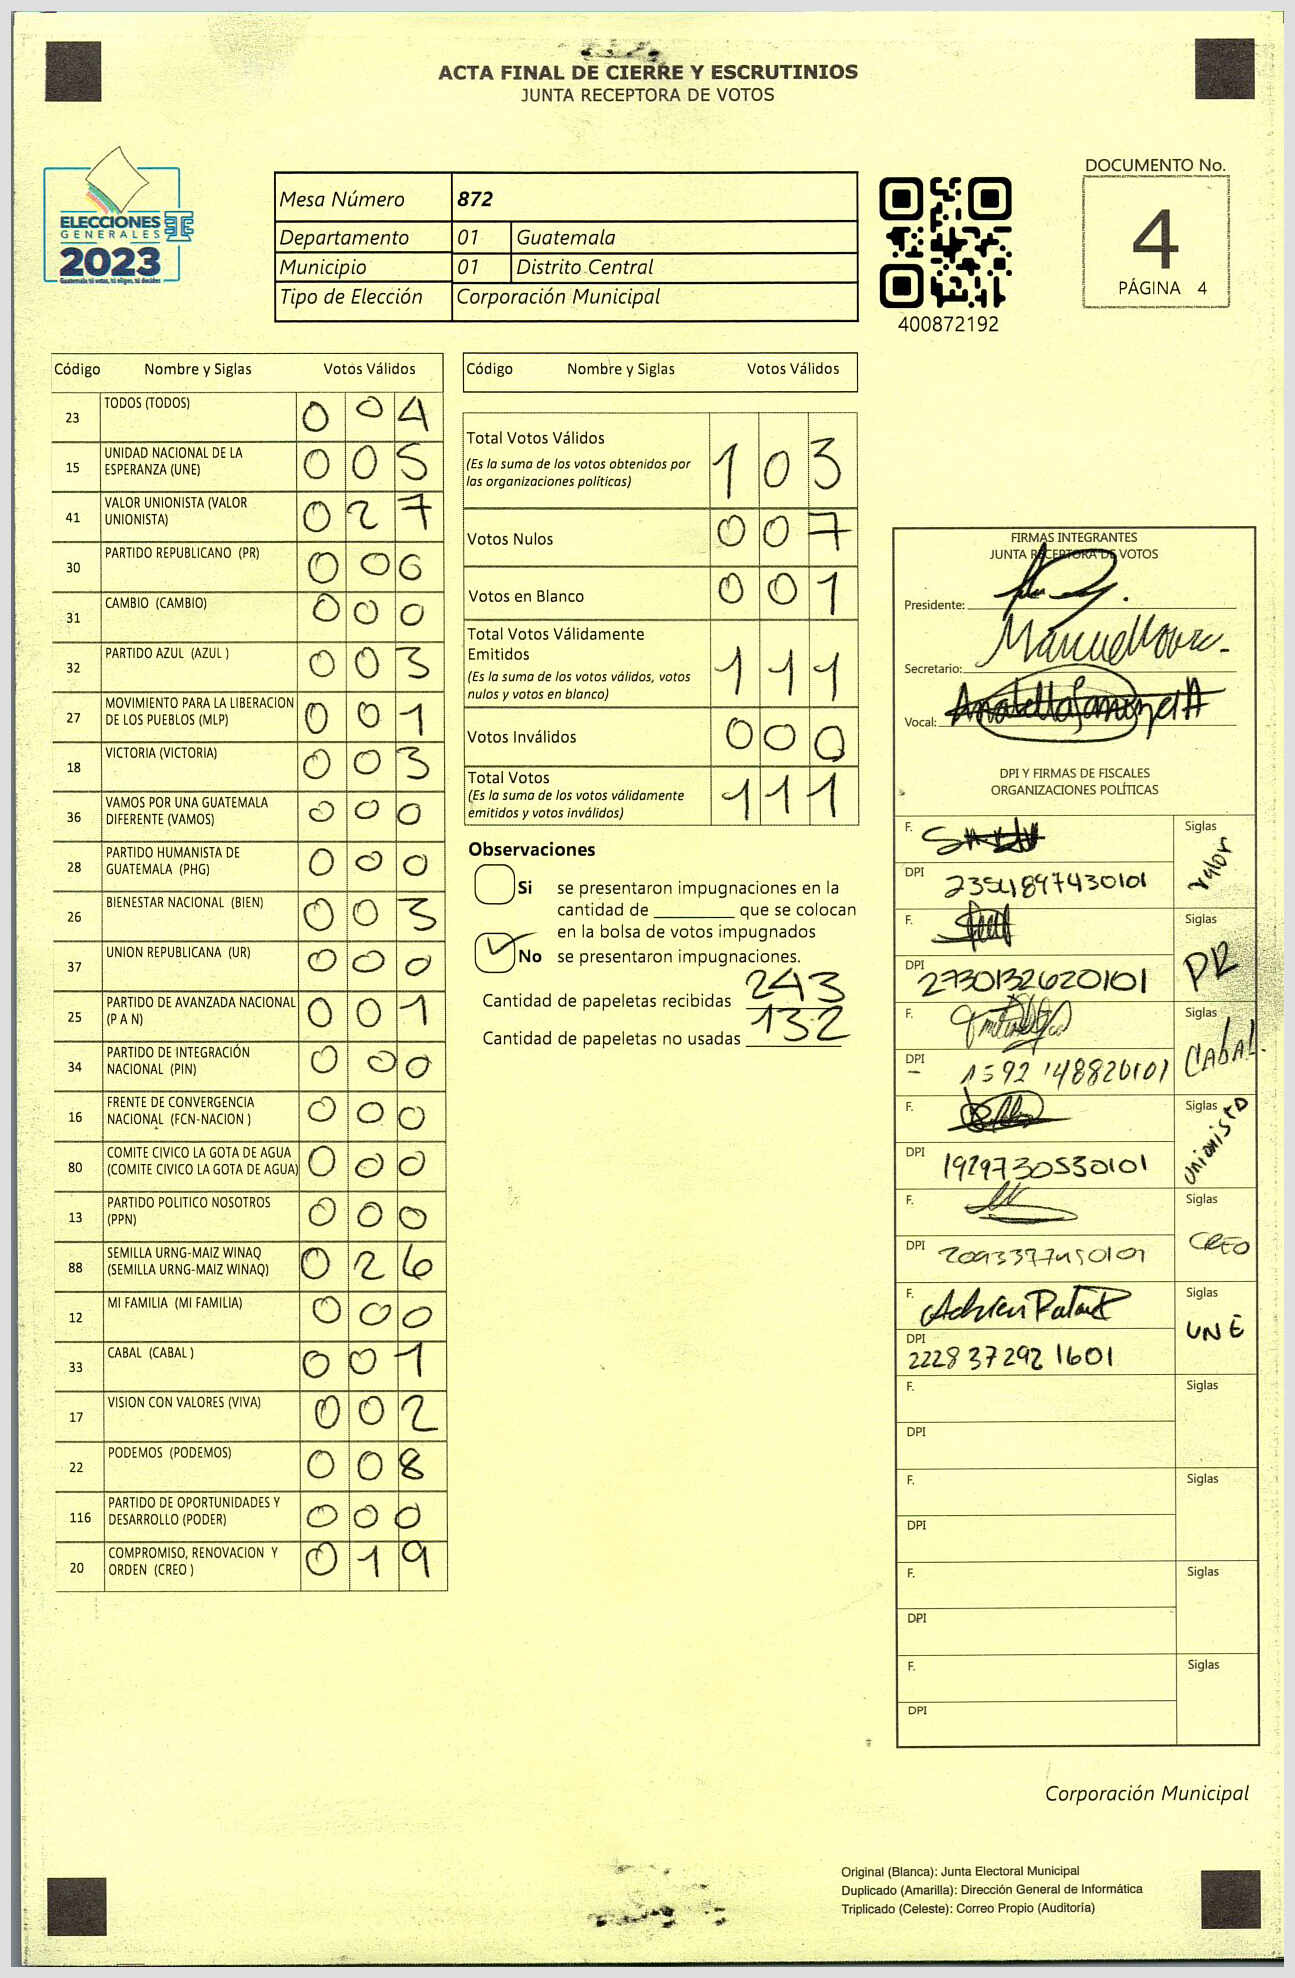 ACTA FINAL DE CIERRE Y ESCRUTINIOS
JUNTA RECEPTORA DE VOTOS
ELECCIONES
GENERALES
2023
Guatemala tú votas, tú eliges, tú decides
TSE
Mesa Número 872
Departamento 01 Guatemala
Municipio 01 Distrito Central
Tipo de Elección Corporación Municipal
400872192
DOCUMENTO No.
4
PÁGINA 4
Código Nombre y Siglas Votos Válidos
23 TODOS (TODOS) 0 0 4
15 UNIDAD NACIONAL DE LA
ESPERANZA (UNE) 0 0 5
41 VALOR UNIONISTA (VALOR
UNIONISTA) 0 2 7
30 PARTIDO REPUBLICANO (PR) 0 0 6
31 CAMBIO (CAMBIO) 0 0 0
32 PARTIDO AZUL (AZUL ) 0 0 3
27 MOVIMIENTO PARA LA LIBERACION
DE LOS PUEBLOS (MLP) 0 0 1
18 VICTORIA (VICTORIA) 0 0 3
36 VAMOS POR UNA GUATEMALA
DIFERENTE (VAMOS) 0 0 0
28 PARTIDO HUMANISTA DE
GUATEMALA (PHG) 0 0 0
26 BIENESTAR NACIONAL (BIEN) 0 0 3
37 UNION REPUBLICANA (UR) 0 0 0
25 PARTIDO DE AVANZADA NACIONAL
(P A N) 0 0 1
34 PARTIDO DE INTEGRACIÓN
NACIONAL (PIN) 0 0 0
16 FRENTE DE CONVERGENCIA
NACIONAL (FCN-NACION ) 0 0 0
80 COMITE CIVICO LA GOTA DE AGUA
(COMITE CIVICO LA GOTA DE AGUA) 0 0 0
13 PARTIDO POLITICO NOSOTROS
(PPN) 0 0 0
88 SEMILLA URNG-MAIZ WINAQ
(SEMILLA URNG-MAIZ WINAQ) 0 2 6
12 MI FAMILIA (MI FAMILIA) 0 0 0
33 CABAL (CABAL ) 0 0 1
17 VISION CON VALORES (VIVA) 0 0 2
22 PODEMOS (PODEMOS) 0 0 8
116 PARTIDO DE OPORTUNIDADES Y
DESARROLLO (PODER) 0 0 0
20 COMPROMISO, RENOVACION Y
ORDEN (CREO ) 0 1 9
Código Nombre y Siglas Votos Válidos
Total Votos Válidos 1 0 3
(Es la suma de los votos obtenidos por
las organizaciones políticas)
Votos Nulos 0 0 7
Votos en Blanco 0 0 1
Total Votos Válidamente
Emitidos 1 1 1
(Es la suma de los votos válidos, votos
nulos y votos en blanco)
Votos Inválidos 0 0 0
Total Votos 1 1 1
(Es la suma de los votos válidamente
emitidos y votos inválidos)
Observaciones
Si se presentaron impugnaciones en la
cantidad de ________ que se colocan
en la bolsa de votos impugnados
No se presentaron impugnaciones.
Cantidad de papeletas recibidas 243
Cantidad de papeletas no usadas 132
FIRMAS INTEGRANTES
JUNTA RECEPTORA DE VOTOS
Presidente:
Secretario:
Vocal:
DPI Y FIRMAS DE FISCALES
ORGANIZACIONES POLÍTICAS
F. Siglas valor
DPI 2354897430101
F. Siglas PR
DPI 2730132620101
F. Siglas CABAL.
DPI 1592 148820101
F. Siglas unionista
DPI 1929730530101
F. Siglas CREO
DPI 2093377450101
F. Adrien Siglas UNE
DPI 2228 37292 1601
F. Siglas
DPI
F. Siglas
DPI
F. Siglas
DPI
F. Siglas
DPI
Corporación Municipal
Original (Blanca): Junta Electoral Municipal
Duplicado (Amarilla): Dirección General de Informática
Triplicado (Celeste): Correo Propio (Auditoría)